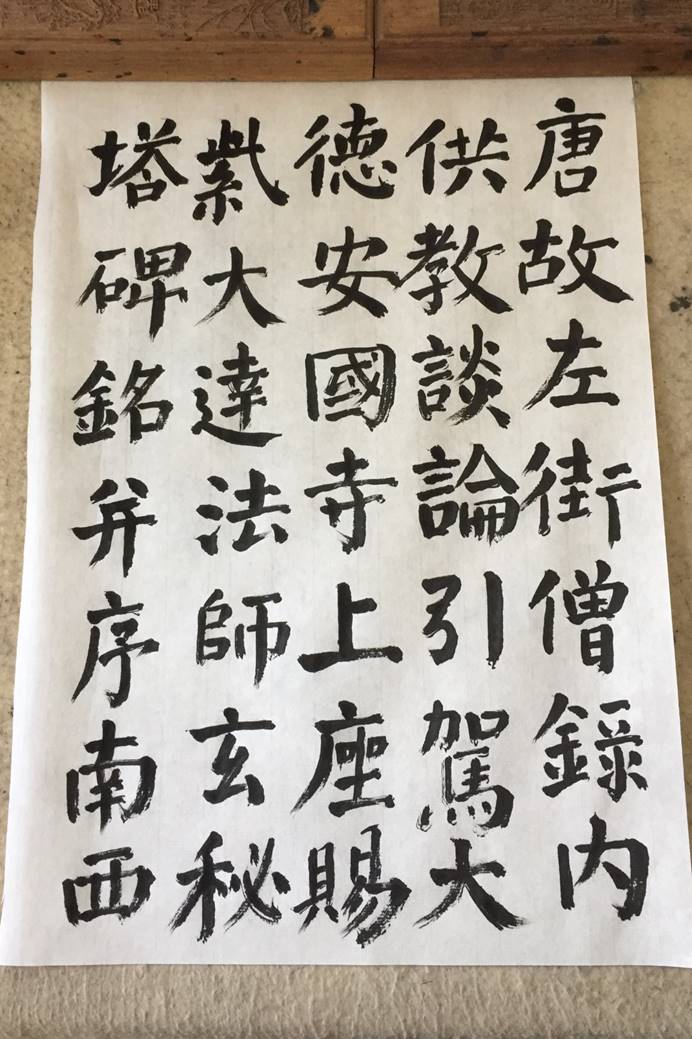 唐故左街僧錄内
供教談論引駕大
德安國寺上座賜
紫大達法師玄秘
塔碑銘并序南西